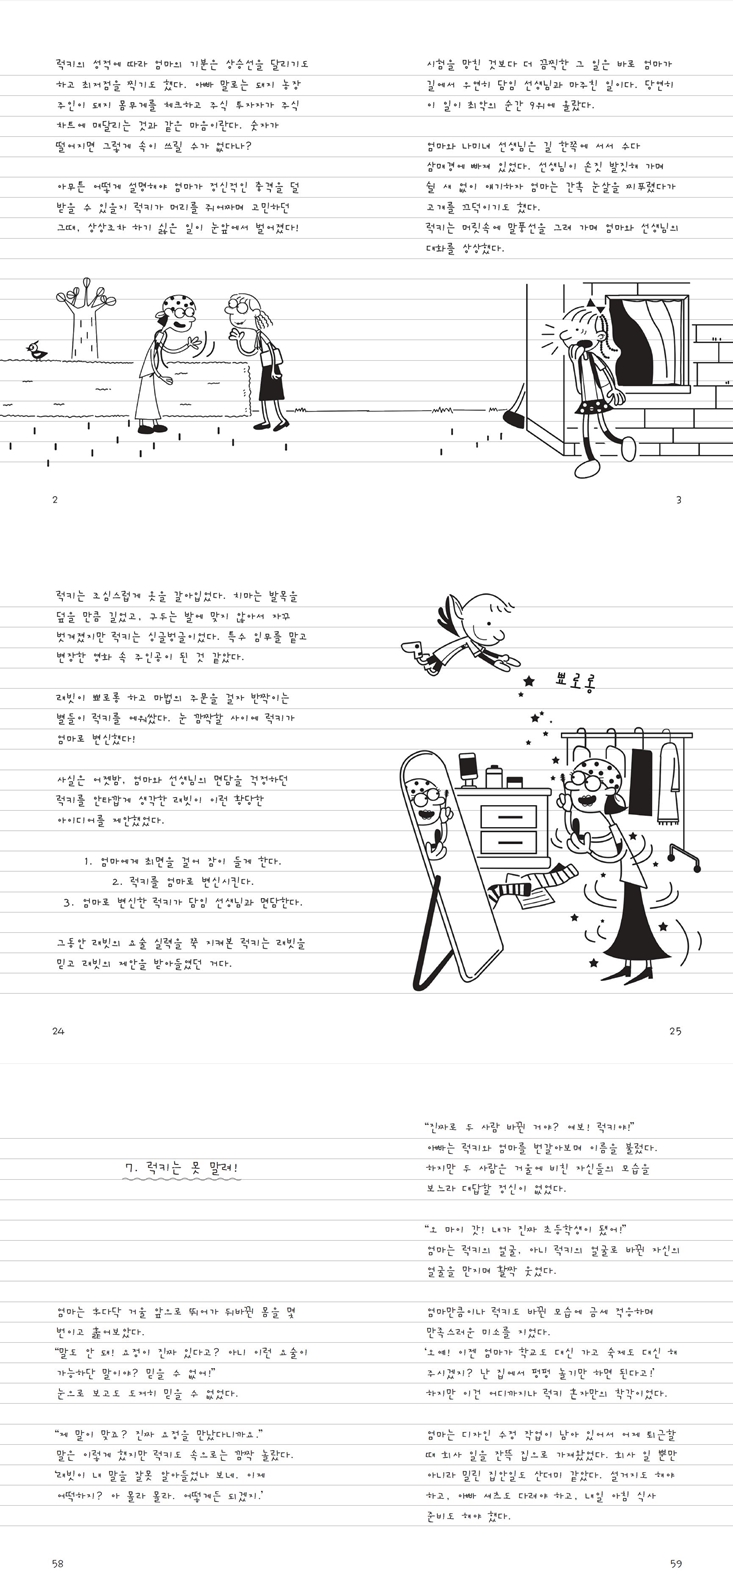 럭키의 성적에 따라 엄마의 기분은 상승선을 달리기도
하고 최저점을 찍기도 했다. 아빠 말로는 돼지 농장
주인이 돼지 몸무게를 체크하고 주식 투자자가 주식
차트에 매달리는 것과 같은 마음이란다. 숫자가
떨어지면 그렇게 속이 쓰릴 수가 없다나?
아무튼 어떻게 설명해야 엄마가 정신적인 충격을 덜
받을 수 있을지 럭키가 머리를 쥐어짜며 고민하던
그때, 상상조차 하기 싫은 일이 눈앞에서 벌어졌다!
2
시험을 망친 것보다 더 끔찍한 그 일은 바로 엄마가
길에서 우연히 담임 선생님과 마주친 일이다. 당연히
이 일이 최악의 순간 9위에 올랐다.
엄마와 나미네 선생님은 길 한쪽에 서서 수다
삼매경에 빠져 있었다. 선생님이 손짓 발짓해 가며
쉴 새 없이 얘기하자 엄마는 간혹 눈살을 찌푸렸다가
고개를 끄덕이기도 했다.
럭키는 머릿속에 말풍선을 그려 가며 엄마와 선생님의
대화를 상상했다.
3
럭키는 조심스럽게 옷을 갈아입었다. 치마는 발목을
덮을 만큼 길었고, 구두는 발에 맞지 않아서 자꾸
벗겨졌지만 럭키는 싱글벙글이었다. 특수 임무를 맡고
변장한 영화 속 주인공이 된 것 같았다.
래빗이 뾰로롱 하고 마법의 주문을 걸자 반짝이는
별들이 럭키를 에워쌌다. 눈 깜짝할 사이에 럭키가
엄마로 변신했다!
사실은 어젯밤, 엄마와 선생님의 면담을 걱정하던
럭키를 안타깝게 생각한 래빗이 이런 황당한
아이디어를 제안했었다.
1. 엄마에게 최면을 걸어 잠이 들게 한다.
2. 럭키를 엄마로 변신시킨다.
3. 엄마로 변신한 럭키가 담임 선생님과 면담한다.
그동안 래빗의 요술 실력을 쭉 지켜본 럭키는 래빗을
믿고 래빗의 제안을 받아들였던 거다.
24
뾰로롱
25
7. 럭키는 못 말려!
엄마는 후다닥 거울 앞으로 뛰어가 뒤바뀐 몸을 몇
번이고 훑어보았다.
“말도 안 돼! 요정이 진짜 있다고? 아니 이런 요술이
가능하단 말이야? 믿을 수 없어!”
눈으로 보고도 도저히 믿을 수 없었다.
“제 말이 맞죠? 진짜 요정을 만났다니까요.”
말은 이렇게 했지만 럭키도 속으로는 깜짝 놀랐다.
‘래빗이 내 말을 잘못 알아들었나 보네. 이제
어떡하지? 아 몰라 몰라. 어떻게든 되겠지.’
58
“진짜로 두 사람 바뀐 거야? 여보! 럭키야!”
아빠는 럭키와 엄마를 번갈아보며 이름을 불렀다.
하지만 두 사람은 거울에 비친 자신들의 모습을
보느라 대답할 정신이 없었다.
“오 마이 갓! 내가 진짜 초등학생이 됐어!”
엄마는 럭키의 얼굴, 아니 럭키의 얼굴로 바뀐 자신의
얼굴을 만지며 활짝 웃었다.
엄마만큼이나 럭키도 바뀐 모습에 금세 적응하며
만족스러운 미소를 지었다.
‘오예! 이젠 엄마가 학교도 대신 가고 숙제도 대신 해
주시겠지? 난 집에서 펑펑 놀기만 하면 된다고!’
하지만 이건 어디까지나 럭키 혼자만의 착각이었다.
엄마는 디자인 수정 작업이 남아 있어서 어제 퇴근할
때 회사 일을 잔뜩 집으로 가져왔었다. 회사 일 뿐만
아니라 밀린 집안일도 산더미 같았다. 설거지도 해야
하고, 아빠 셔츠도 다려야 하고, 내일 아침 식사
준비도 해야 했다.
59